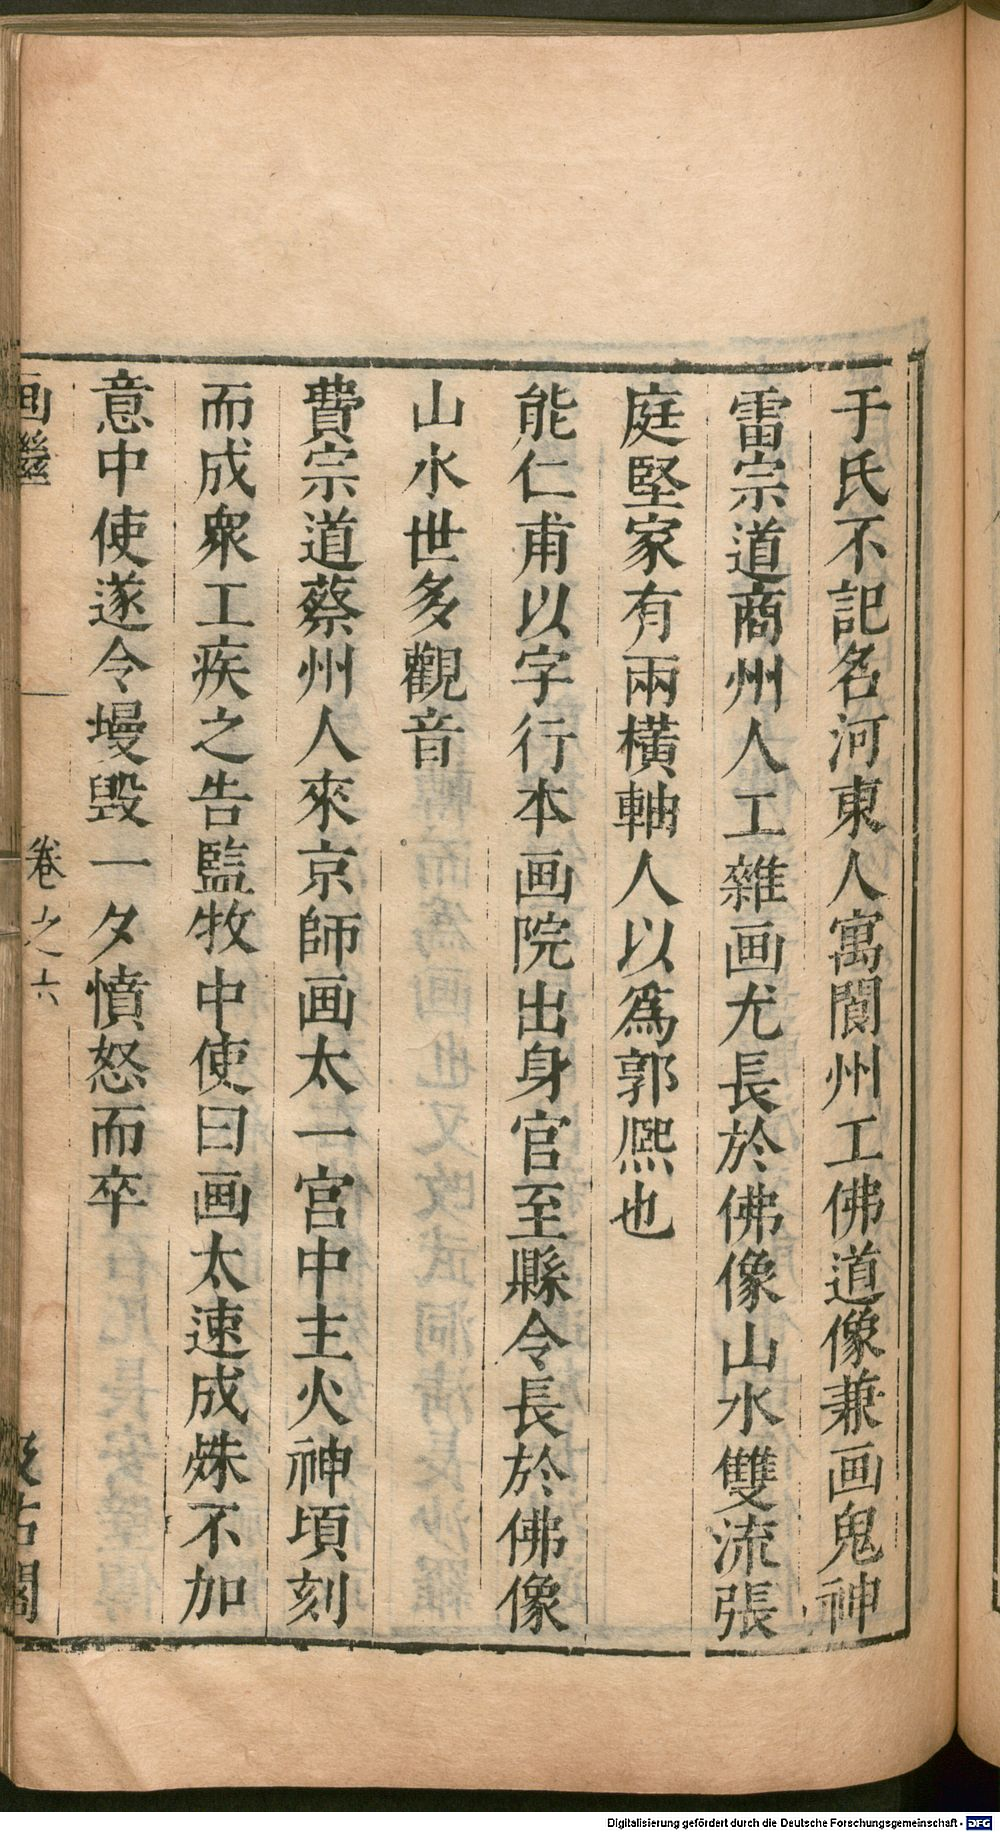 于氏不記名河東人寓閬州工佛道像兼画鬼神
雷宗道商州人工雜画尤長於佛像山水雙流張
庭堅家有兩橫軸人以爲郭熈也
能仁甫以字行本画院出身官至縣令長於佛像
山水世多觀音
費宗道蔡州人來京師画太一宮中主火神頃刻
而成衆工疾之告監牧中使曰画太速成殊不加
意中使遂令墁毁一夕憤怒而卒
画繼 卷之六 汲古閣
Digitalisierung gefördert durch die Deutsche Forschungsgemeinschaft - DFG